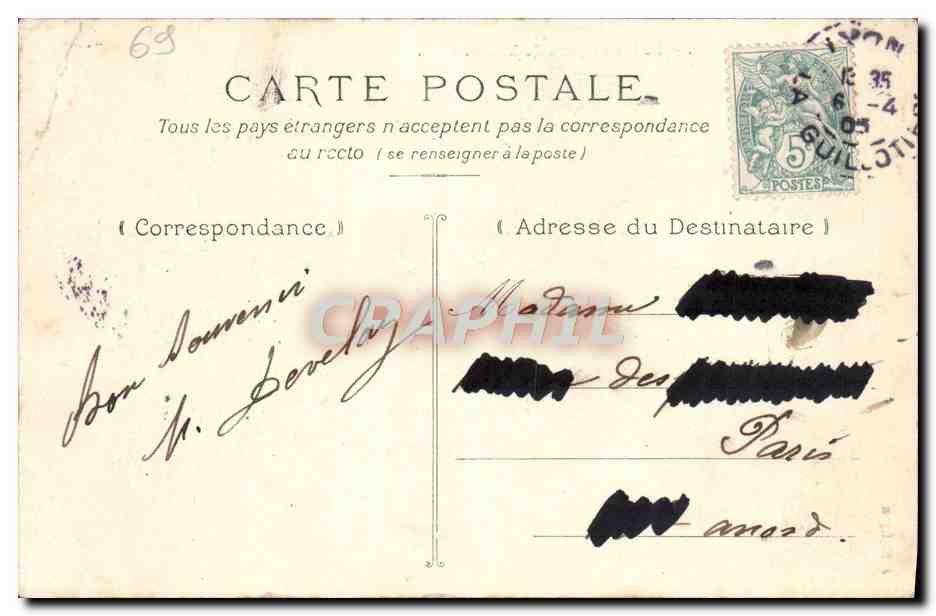 69
CARTE POSTALE
Tous les pays étrangers n'acceptent pas la correspondance
au recto (se renseigner à la poste)
LYON
35
6 -4
05
GUILLOTIE
5
POSTES
Correspondance
Adresse du Destinataire
Bon souvenir
Madame
des
Paris
CRAPHIL